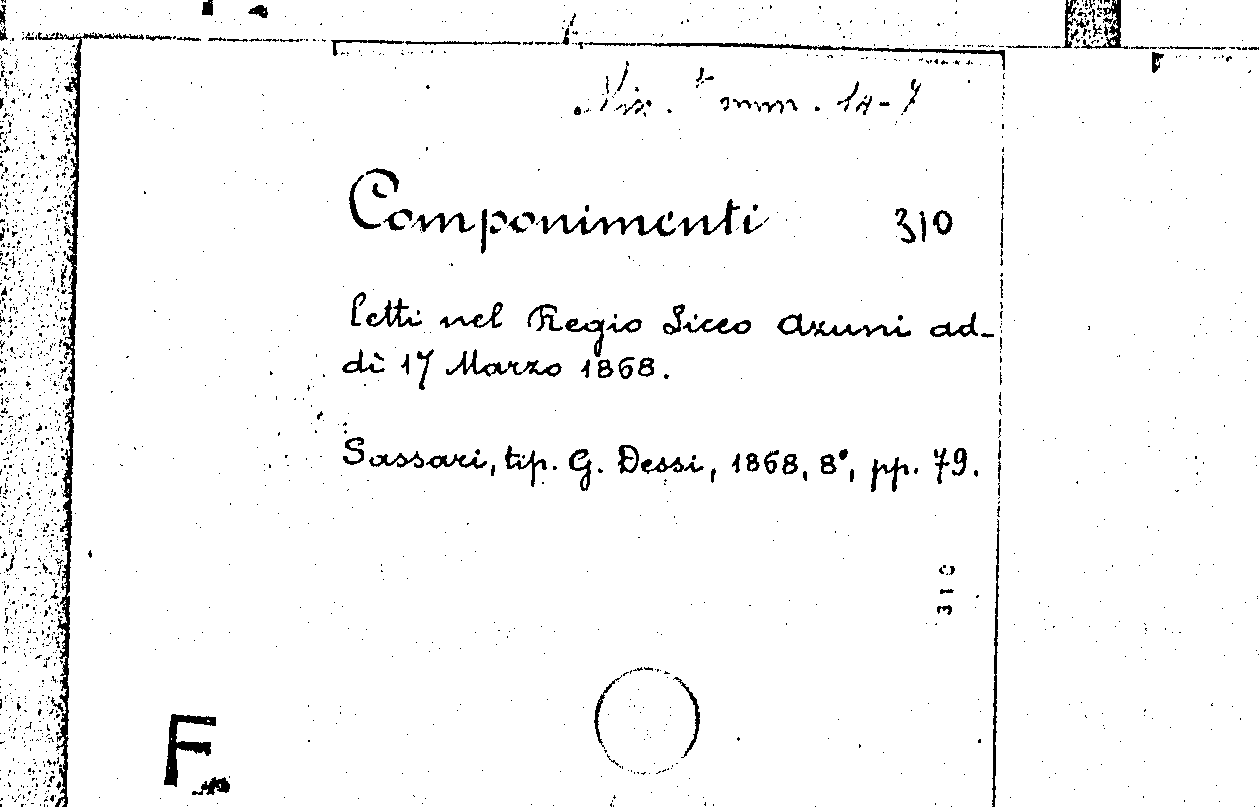 Componimenti 310
letti nel Regio Liceo Azuni ad-
dì 17 Marzo 1868.
Sassari, tip. G. Dessi, 1868, 8°, pp. 79.
310
F